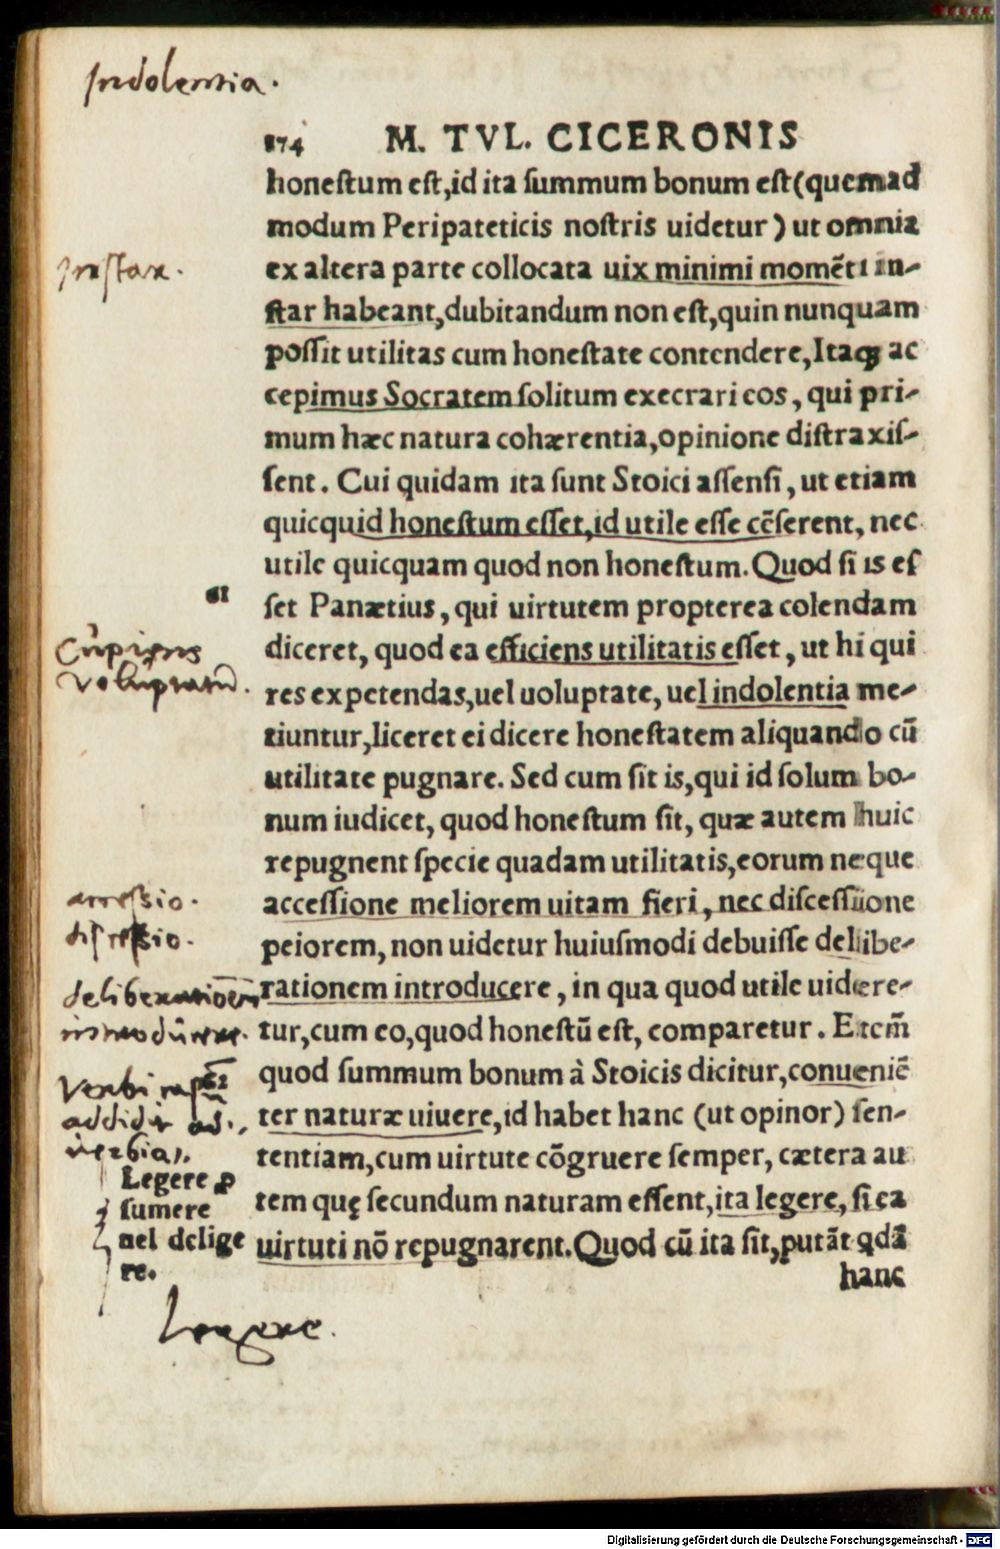 Indolentia.
174 M. TVL. CICERONIS
honeſtum eſt,id ita ſummum bonum eſt(quemad
modum Peripateticis noſtris uidetur) ut omnia
ex altera parte collocata uix minimi momẽti in-
ſtar habeant,dubitandum non eſt,quin nunquam
poſſit utilitas cum honeſtate contendere,Itaqꝫ ac
cepimus Socratem ſolitum execrari eos, qui pri-
mum hæc natura cohærentia,opinione diſtraxiſ-
ſent. Cui quidam ita ſunt Stoici aſſenſi, ut etiam
quicquid honeſtum eſſet,id utile eſſe cẽſerent, nec
utile quicquam quod non honeſtum. Quod ſi is eſ
ſet Panætius, qui uirtutem propterea colendam
diceret, quod ea efficiens utilitatis eſſet, ut hi qui
res expetendas,uel uoluptate, uel indolentia me-
tiuntur,liceret ei dicere honeſtatem aliquando cũ
utilitate pugnare. Sed cum ſit is,qui id ſolum bo-
num iudicet, quod honeſtum ſit, quæ autem huic
repugnent ſpecie quadam utilitatis,eorum neque
acceſſione meliorem uitam fieri, nec diſceſſione
peiorem, non uidetur huiuſmodi debuiſſe delibe-
rationem introducere, in qua quod utile uidere-
tur,cum eo,quod honeſtũ eſt, comparetur. Etem̃
quod ſummum bonum à Stoicis dicitur,conueniẽ
ter naturæ uiuere,id habet hanc (ut opinor) ſen-
tentiam,cum uirtute cõgruere ſemper, cætera au
tem quę ſecundum naturam eſſent,ita legere, ſi ea
uirtuti nõ repugnarent. Quod cũ ita ſit,putãt qdã
hanc
efficiens
voluptatũ.
accessio.
discessio.
deliberationem
introducere.
addidit ad
Legere p
ſumere
uel delige
re.
Legere.